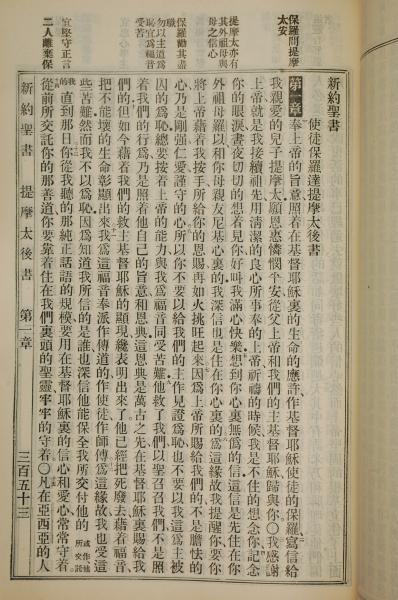 新約聖書
使徒保羅達提摩太後書
保羅問提摩
太安
第一章 奉上帝的旨意照着在基督耶穌裏的生命的應許作基督耶穌使徒的保羅寫信給
我親愛的兒子提摩太願恩惠憐憫平安從父上帝和我們的主基督耶穌歸與你○我感謝
上帝就是我接續祖先用清潔的良心所事奉的上帝祈禱的時候我是不住的想念你記念
提摩太亦有
其外祖母與
母之信心
你的眼淚晝夜切切的想着見你好叫我滿心快樂想到你心裏無僞的信這信是先住在你
外祖母羅以和你母親友尼基心裏的我深信也是住在你心裏的爲這緣故我提醒你要你
將上帝藉着我按手所給你的恩賜再如火挑旺起來因爲上帝所賜給我們的不是膽怯的
保羅勸其盡
職
勿以主道爲
恥宜爲福音
受苦
心乃是剛強仁愛謹守的心所以你不要以給我們的主作見證爲恥也不要以我這爲主被
囚的爲恥總要按着上帝的能力與我爲福音同受苦難他救了我們以聖召召我們不是照
着我們的行爲乃是照着他自己的旨意和恩典這恩典是萬古之先在基督耶穌裏賜給我
們的但如今藉着我們的救主基督耶穌的顯現纔表明出來了他已經把死廢去藉着福音
把不能壞的生命彰顯出來我爲這福音奉派作傳道的作使徒作師傅爲這緣故我也受這
些苦難然而我不以爲恥因爲知道我所信的是誰也深信他能保全我所交付他的 或作他所交託
宜堅守正言
我的 直到那日你從我聽的那純正話語的規模要用在基督耶穌裏的信心和愛心常常守着
二人離棄保
從前所交託你的那善道你要靠着住在我們裏頭的聖靈牢牢的守着○凡在亞西亞的人
新約聖書 提摩太後書 第一章 三百五十三